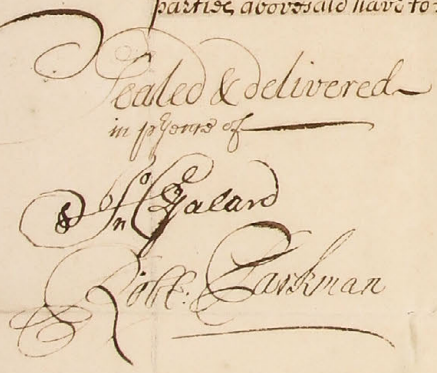 parties abovesaid have to
Sealed & delivered
in psence of
Jno
Robt: Parkman